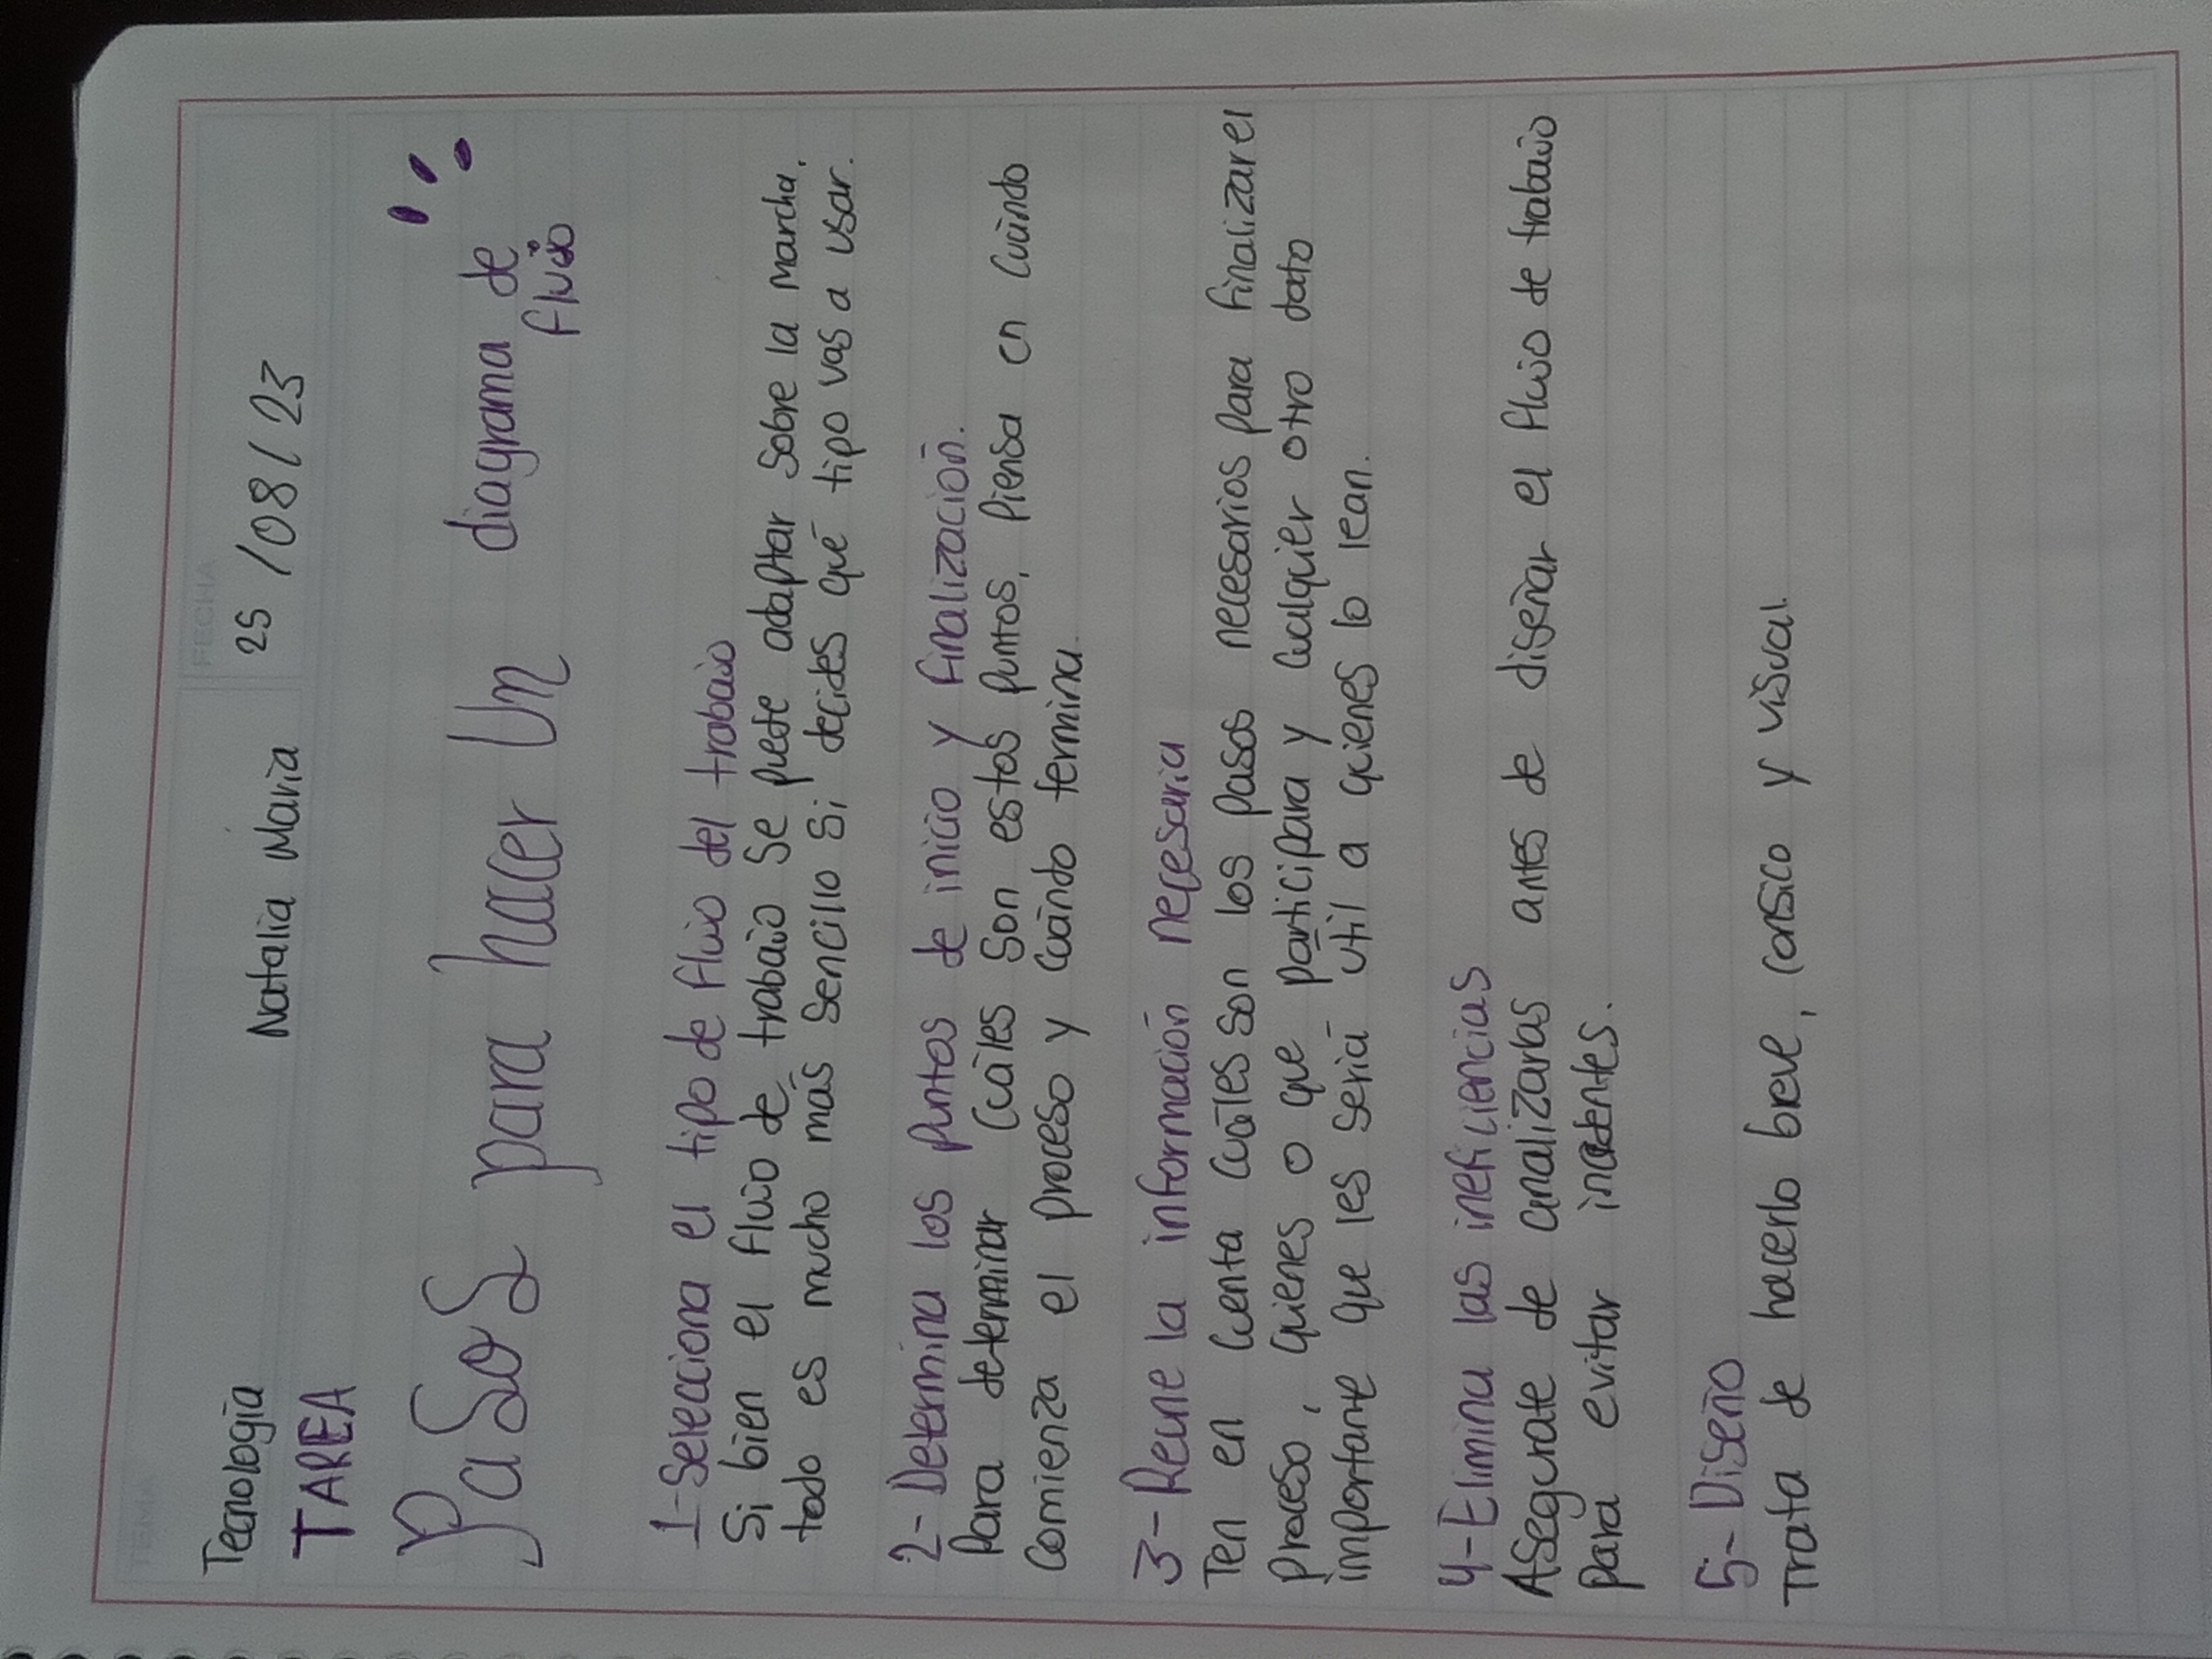 TEMA
FECHA
Tecnología Natalia María 25 / 08 / 23
TAREA
Pasos para hacer Un diagrama de
flujo
1-Selecciona el tipo de flujo del trabajo
Si bien el flujo de trabajo Se puede adaptar sobre la marcha,
todo es mucho más sencillo si decides qué tipo vas a usar.
2- Determina los puntos de inicio y finalización.
Para determinar cuáles son estos puntos, piensa en cuándo
comienza el proceso y cuándo termina.
3-Reune la información necesaria
Ten en cuenta cuáles son los pasos necesarios para finalizar el
proceso, quienes o que participara y cualquier otro dato
importante que les sería útil a quienes lo lean.
4-Elimina las ineficiencias
Asegurate de analizarlas antes de diseñar el flujo de trabajo
para evitar
5- Diseño
Trata de hacerlo breve, consico y visual.